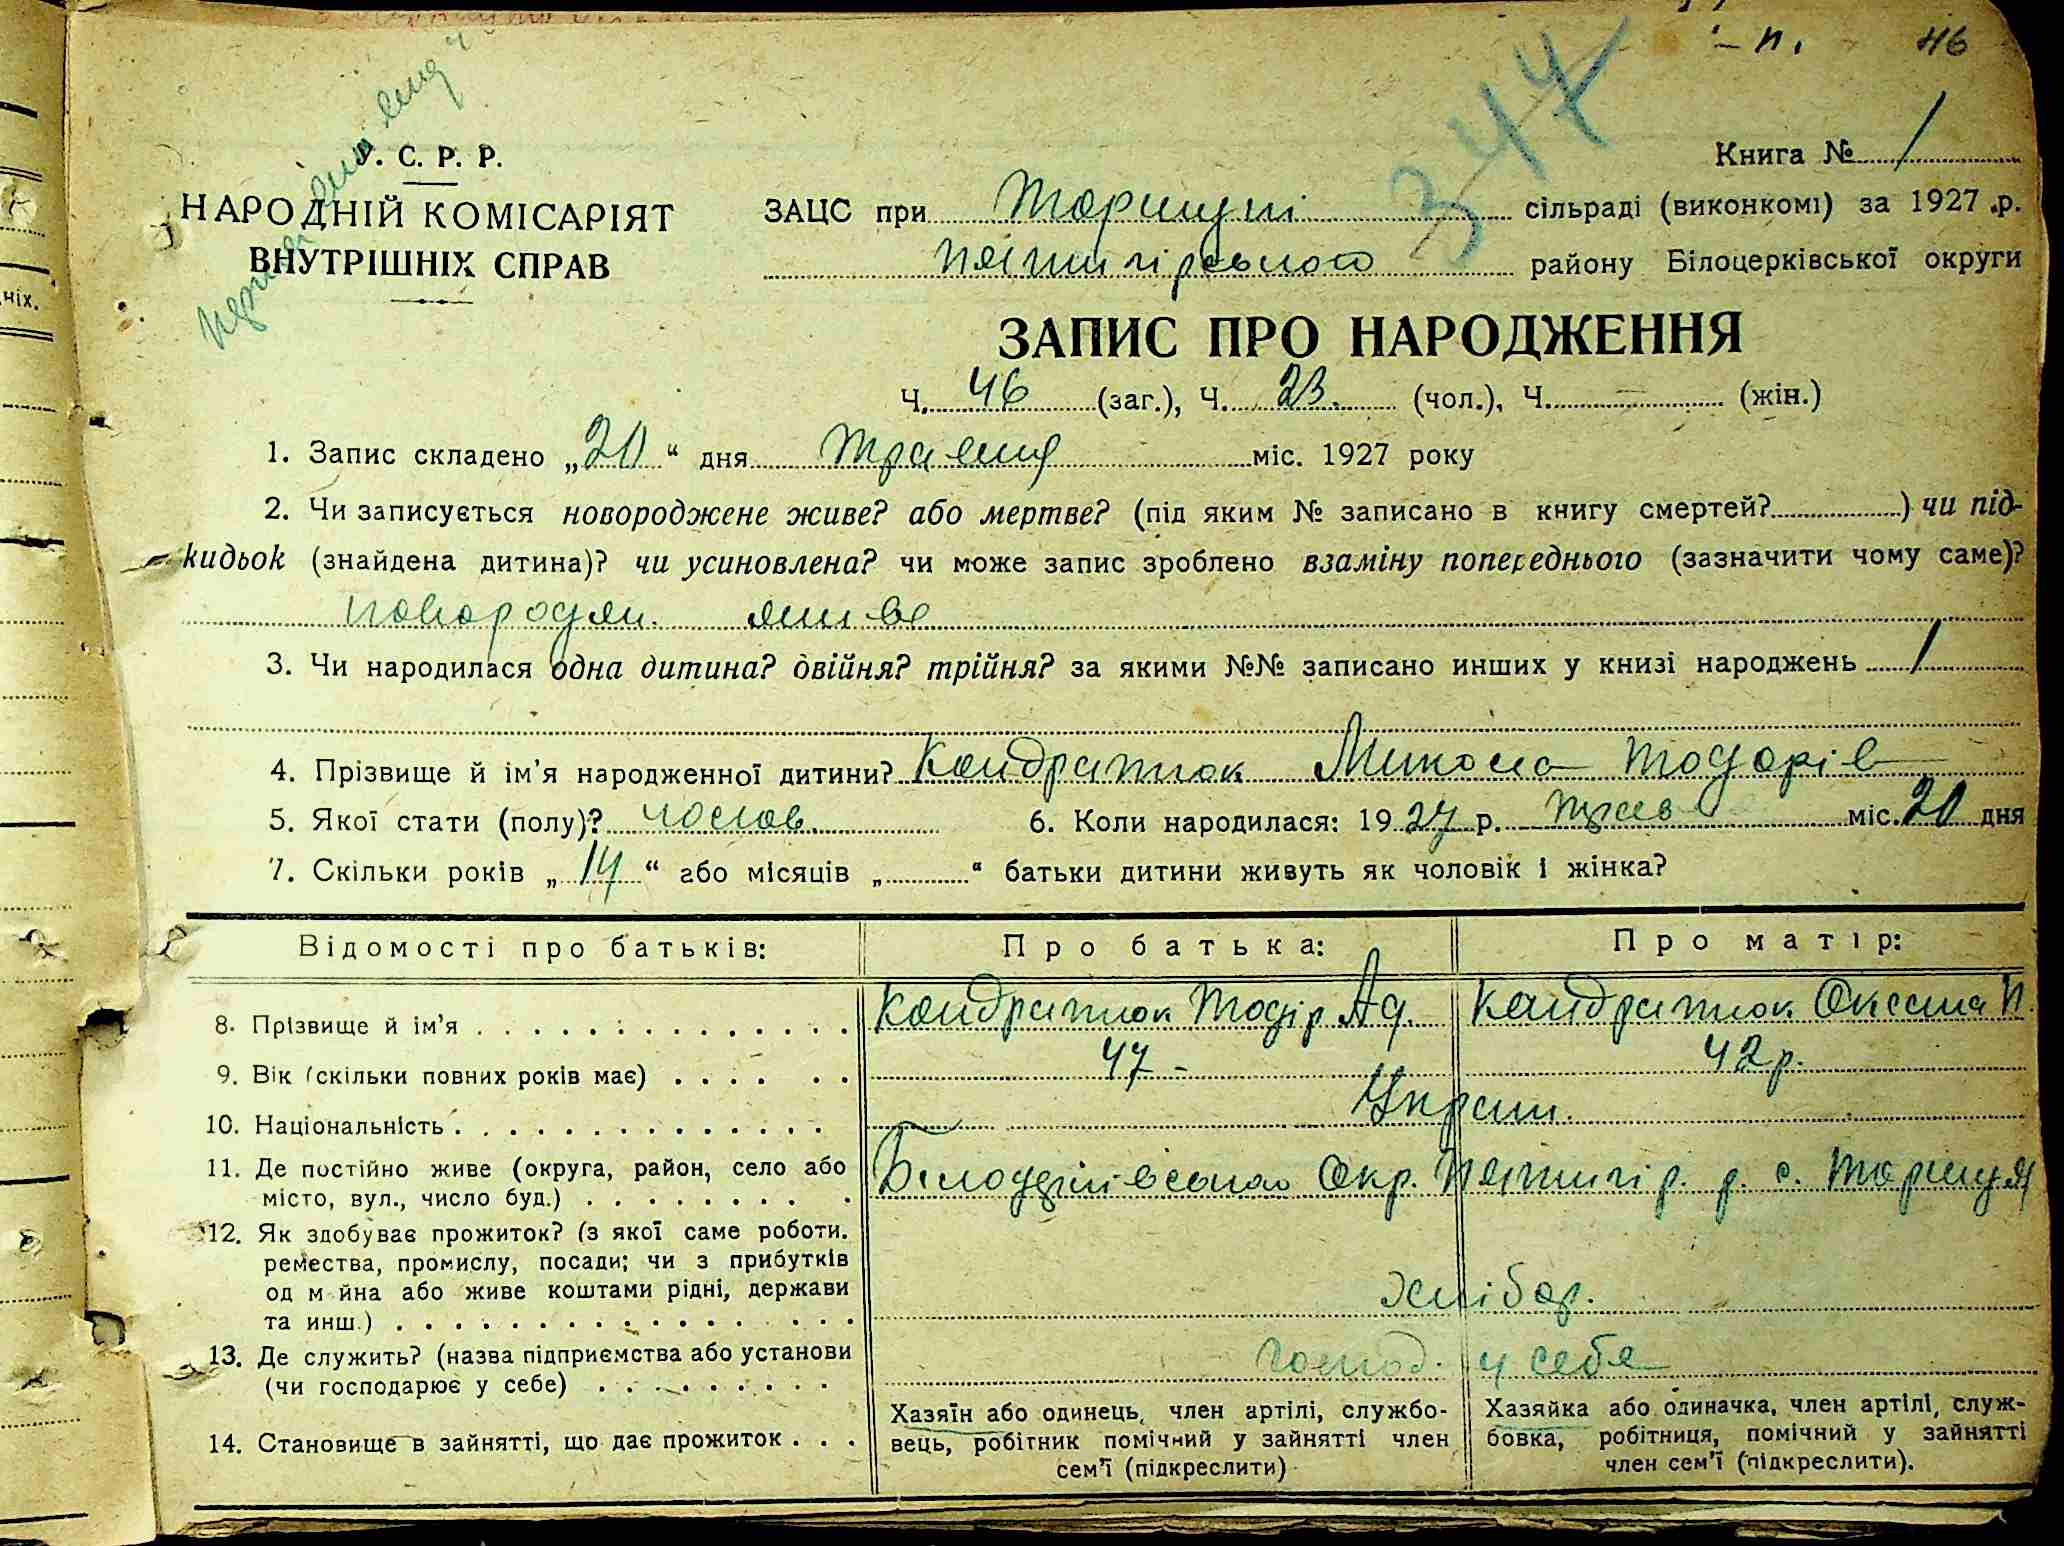 -п. 46
347
У. С. Р. Р.
Книга № 1
НАРОДНІЙ КОМІСАРІЯТ
ВНУТРІШНІХ СПРАВ
ЗАЦС при Торчиці сільраді (виконкомі) за 1927 .р.
Пятигірського району Білоцерківської округи
ЗАПИС ПРО НАРОДЖЕННЯ
Ч. 46 (заг.), Ч. 23. (чол.), Ч. — (жін.)
1. Запис складено „20“ дня травня міс. 1927 року
2. Чи записується новороджене живе? або мертве? (під яким № записано в книгу смертей? ) чи під-
кидьок (знайдена дитина)? чи усиновлена? чи може запис зроблено взаміну попереднього (зазначити чому саме)?
новородж. живе
3. Чи народилася одна дитина? двійня? трійня? за якими №№ записано инших у книзі народжень 1
4. Прізвище й ім’я народженної дитини? Кондратюк Микола Тодорів
5. Якої стати (полу)? чолов. 6. Коли народилася: 1927 р. трав міс. 20 дня
7. Скільки років „14“ або місяців „ “ батьки дитини живуть як чоловік і жінка?
Відомості про батьків: Про батька: Про матір:
8. Прізвище й ім’я Кондратюк Тодір Ад. Кондратюк Оксана П.
9. Вік (скільки повних років має) 47 - 42 р.
10. Національність Украін.
11. Де постійно живе (округа, район, село або
місто, вул., число буд.) Білоцерківська Окр. Пятигір. р. с. Торчиця
12. Як здобуває прожиток? (з якої саме роботи.
ремества, промислу, посади; чи з прибутків
од м йна або живе коштами рідні, держави
та инш.) хлібор.
13. Де служить? (назва підприємства або установи
(чи господарює у себе) Господ. у себе
14. Становище в зайнятті, що дає прожиток
Хазяїн або одинець, член артілі, службо-
вець, робітник помічний у зайнятті член
сем’ї (підкреслити)
Хазяйка або одиначка, член артілі, служ-
бовка, робітниця, помічний у зайнятті
член сем’ї (підкреслити).